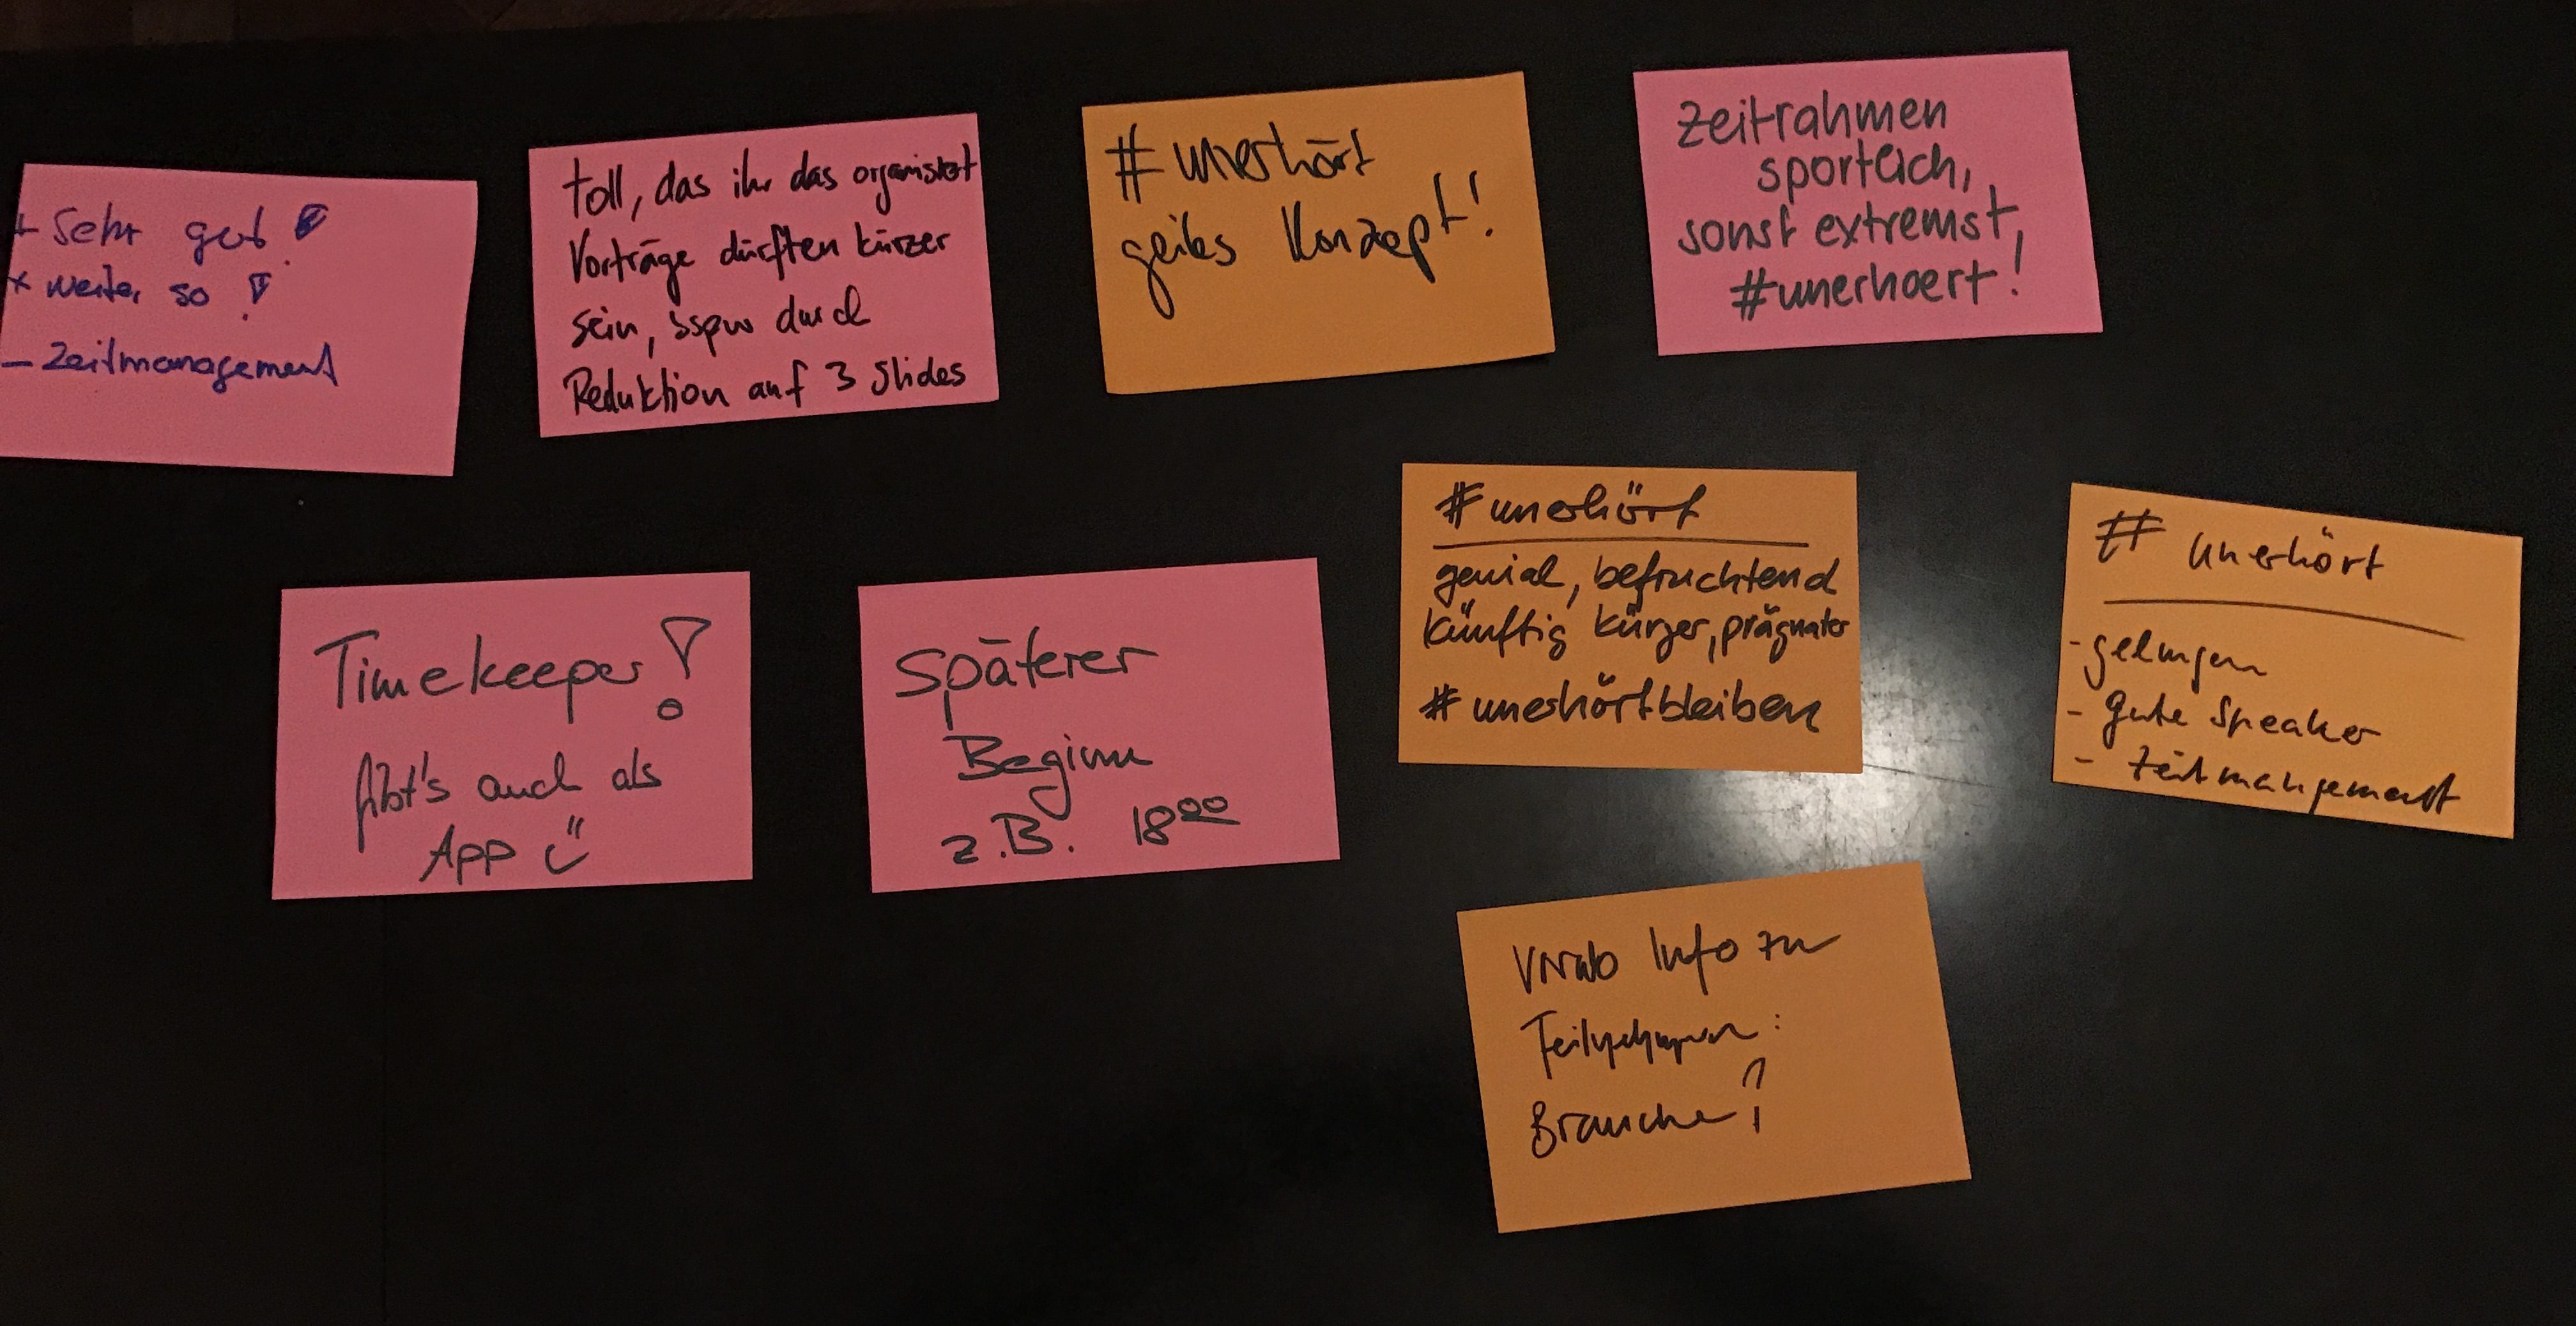 + Sehr gut!
+ weiter so!
- Zeitmanagement
toll, das ihr das organisiert
Vorträge dürften kürzer
sein, bspw durch
Reduktion auf 3 Slides
# unerhört
geiles Konzept!
Zeitrahmen
sportlich,
sonst extremst,
#unerhoert!
Timekeeper!
gibt's auch als
App ü
Späterer
Beginn
z.B. 18⁰⁰
# unerhört
genial, befruchtend
künftig kürzer, prägnater
# unerhörtbleiben
# unerhört
- gelungen
- gute Speaker
- Zeitmangement
Vorab Info zu
Branche?